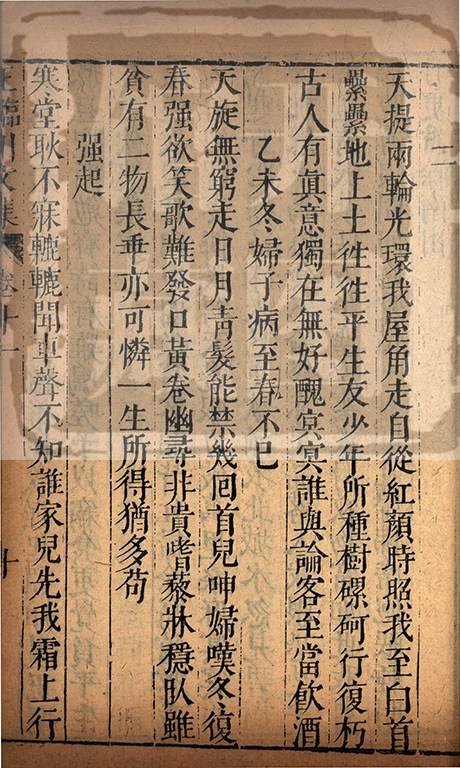 二
天提兩輪光環我屋角走自從紅顏時照我至白首
纍纍地上土徃徃平生友少年所種樹磥砢行復朽
古人有真意獨在無好醜冥冥誰與論客至當飲酒
乙未冬婦子病至春不已
天旋無窮走日月青髮能禁幾回首兒呻婦嘆冬復
春强欲笑歌難發口黃卷幽尋非貴嗜藜牀穩臥雖
貧有二物長垂亦可憐一生所得猶多苟
强起
寒堂耿不寐轆轆聞車聲不知誰家兒先我霜上行
王臨川文集 卷十一 十